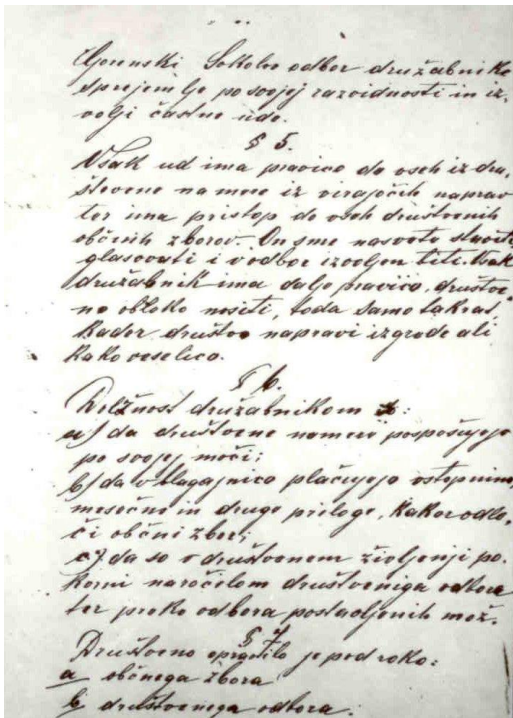 Gorenski Sokolov odbor družabnike
sprejemlje po svojej razvidnosti in iz-
volji častne ude.
§ 5.
Vsak ud ima pravico do vseh iz dru-
štvene namere izvirajočih naprav
ter ima pristop do vseh društvenih
občnih zborov. On sme nasvete staviti
glasovati i v odbor izvoljen biti. Vsak
družabnik ima dalje pravico, društve-
no obleko nositi, toda samo takrat,
kader društvo napravi izgrede ali
kako veselico.
§ 6.
Dolžnost družabnikom je:
a) da društvene namere pospešujejo
po svojej moči;
b) da v blagajnico plačujejo vstopnino,
mesečne in druge priloge, kakor odlo-
či občni zbor;
c) da so v društvenem življenji po-
korni naročilom društveniga odbora
ter preko odbora postavljenih mož.
§ 7
Društveno opravilo je pod roko:
a občnega zbora
b društvenega odbora: